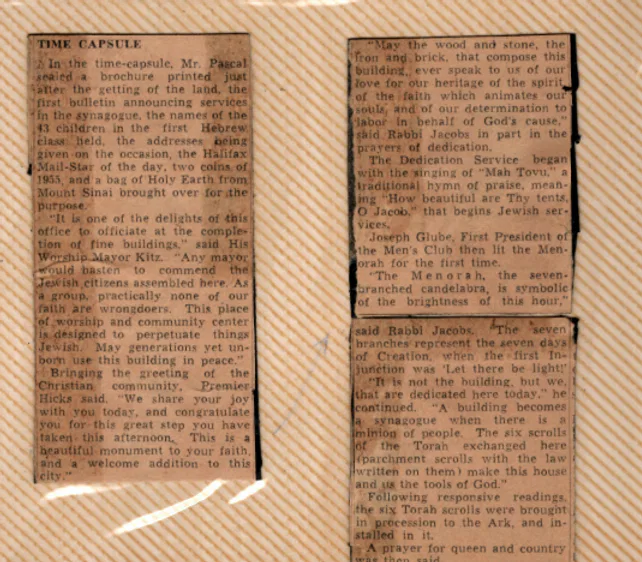 TIME CAPSULE
In the time-capsule, Mr. Pascal
sealed a brochure printed just
after the getting of the land, the
first bulletin announcing services
in the synagogue, the names of the
43 children in the first Hebrew
class held, the addresses being
given on the occasion, the Halifax
Mail-Star of the day, two coins of
1955, and a bag of Holy Earth from
Mount Sinai brought over for the
purpose.
"It is one of the delights of this
office to officiate at the comple-
tion of fine buildings," said His
Worship Mayor Kitz. "Any mayor
would hasten to commend the
Jewish citizens assembled here. As
a group, practically none of our
faith are wrongdoers. This place
of worship and community center
is designed to perpetuate things
Jewish. May generations yet un-
born use this building in peace."
Bringing the greeting of the
Christian community, Premier
Hicks said, "We share your joy
with you today, and congratulate
you for this great step you have
taken this afternoon. This is a
beautiful monument to your faith,
and a welcome addition to this
city."
"May the wood and stone, the
iron and brick, that compose this
building, ever speak to us of our
love for our heritage of the spirit,
of the faith which animates our
souls, and of our determination to
labor in behalf of God's cause,"
said Rabbi Jacobs in part in the
prayers of dedication.
The Dedication Service began
with the singing of "Mah Tovu," a
traditional hymn of praise, mean-
ing "How beautiful are Thy tents,
O Jacob," that begins Jewish ser-
vices.
Joseph Glube, First President of
the Men's Club then lit the Men-
orah for the first time.
"The Menorah, the seven-
branched candelabra, is symbolic
of the brightness of this hour,"
said Rabbi Jacobs. "The seven
branches represent the seven days
of Creation, when the first In-
junction was 'Let there be light!'
"It is not the building, but we,
that are dedicated here today," he
continued. "A building becomes
a synagogue when there is a
minion of people. The six scrolls
of the Torah exchanged here
(parchment scrolls with the law
written on them) make this house
and us the tools of God."
Following responsive readings,
the six Torah scrolls were brought
in procession to the Ark, and in-
stalled in it.
A prayer for queen and country
was then said